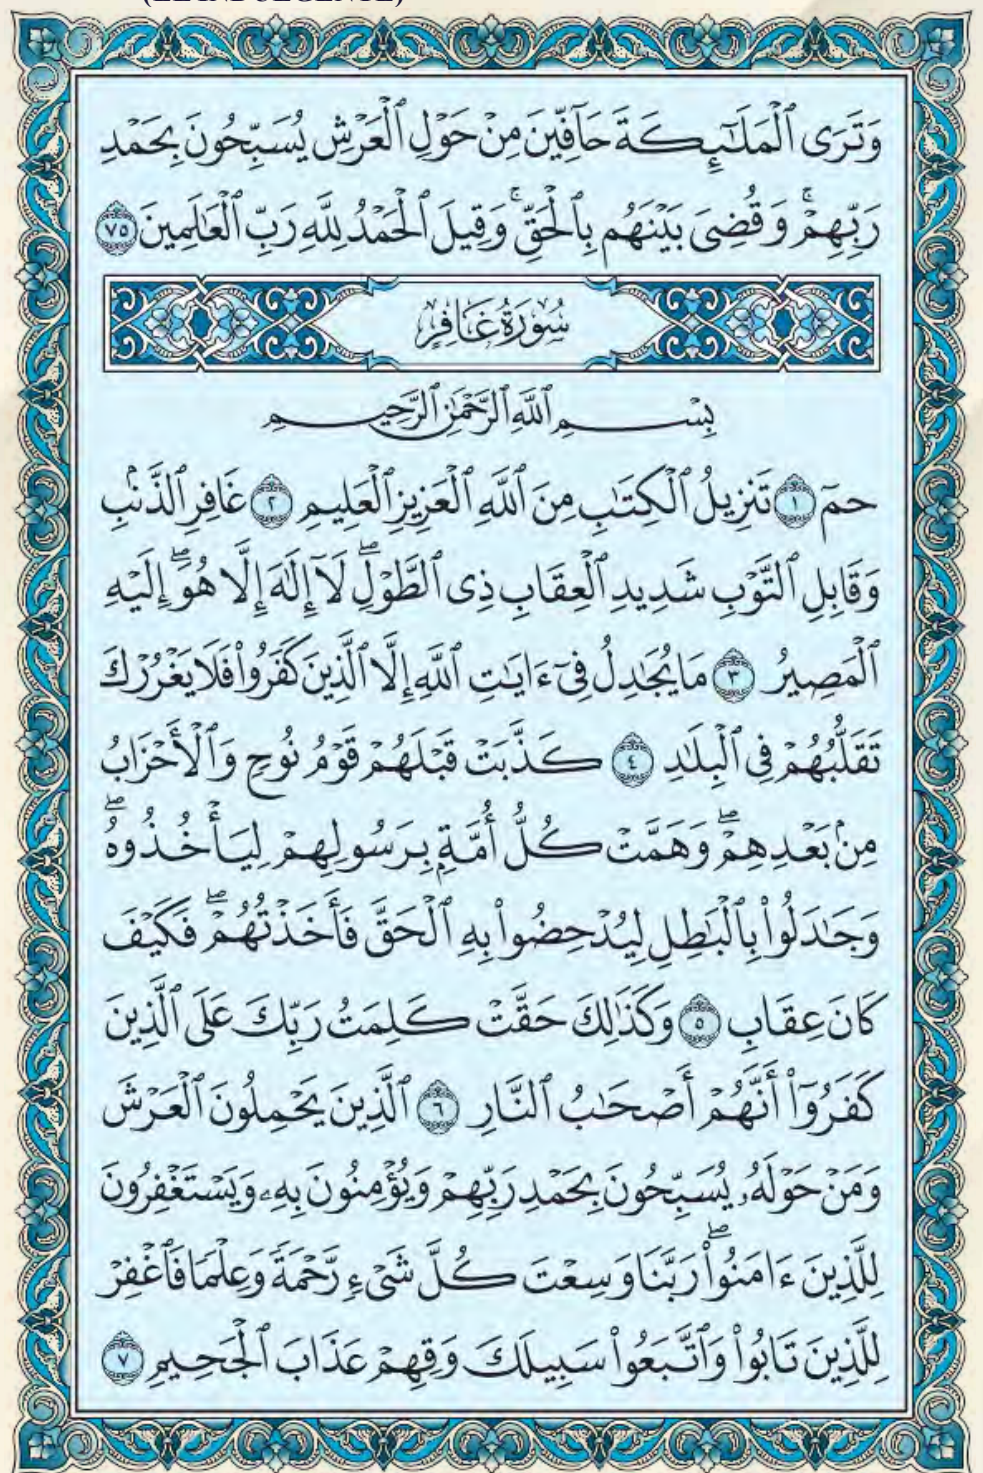 (EL INDULGENTE)
وَتَرَى ٱلْمَلَـٰٓئِكَةَ حَآفِّينَ مِنْ حَوْلِ ٱلْعَرْشِ يُسَبِّحُونَ بِحَمْدِ
رَبِّهِمْ ۖ وَقُضِىَ بَيْنَهُم بِٱلْحَقِّ ۚ وَقِيلَ ٱلْحَمْدُ لِلَّهِ رَبِّ ٱلْعَـٰلَمِينَ ٧٥
سُورَةُ غَافِرٍ
بِسْمِ ٱللَّهِ ٱلرَّحْمَـٰنِ ٱلرَّحِيمِ
حمٓ ١ تَنزِيلُ ٱلْكِتَـٰبِ مِنَ ٱللَّهِ ٱلْعَزِيزِ ٱلْعَلِيمِ ٢ غَافِرِ ٱلذَّنۢبِ
وَقَابِلِ ٱلتَّوْبِ شَدِيدِ ٱلْعِقَابِ ذِى ٱلطَّوْلِ ۖ لَآ إِلَـٰهَ إِلَّا هُوَ ۖ إِلَيْهِ
ٱلْمَصِيرُ ٣ مَا يُجَـٰدِلُ فِىٓ ءَايَـٰتِ ٱللَّهِ إِلَّا ٱلَّذِينَ كَفَرُوا۟ فَلَا يَغْرُرْكَ
تَقَلُّبُهُمْ فِى ٱلْبِلَـٰدِ ٤ كَذَّبَتْ قَبْلَهُمْ قَوْمُ نُوحٍ وَٱلْأَحْزَابُ
مِنۢ بَعْدِهِمْ ۖ وَهَمَّتْ كُلُّ أُمَّةٍۭ بِرَسُولِهِمْ لِيَأْخُذُوهُ ۖ
وَجَـٰدَلُوا۟ بِٱلْبَـٰطِلِ لِيُدْحِضُوا۟ بِهِ ٱلْحَقَّ فَأَخَذْتُهُمْ ۖ فَكَيْفَ
كَانَ عِقَابِ ٥ وَكَذَٰلِكَ حَقَّتْ كَلِمَتُ رَبِّكَ عَلَى ٱلَّذِينَ
كَفَرُوٓا۟ أَنَّهُمْ أَصْحَـٰبُ ٱلنَّارِ ٦ ٱلَّذِينَ يَحْمِلُونَ ٱلْعَرْشَ
وَمَنْ حَوْلَهُۥ يُسَبِّحُونَ بِحَمْدِ رَبِّهِمْ وَيُؤْمِنُونَ بِهِۦ وَيَسْتَغْفِرُونَ
لِلَّذِينَ ءَامَنُوا۟ ۖ رَبَّنَا وَسِعْتَ كُلَّ شَىْءٍ رَّحْمَةً وَعِلْمًا فَٱغْفِرْ
لِلَّذِينَ تَابُوا۟ وَٱتَّبَعُوا۟ سَبِيلَكَ وَقِهِمْ عَذَابَ ٱلْجَحِيمِ ٧